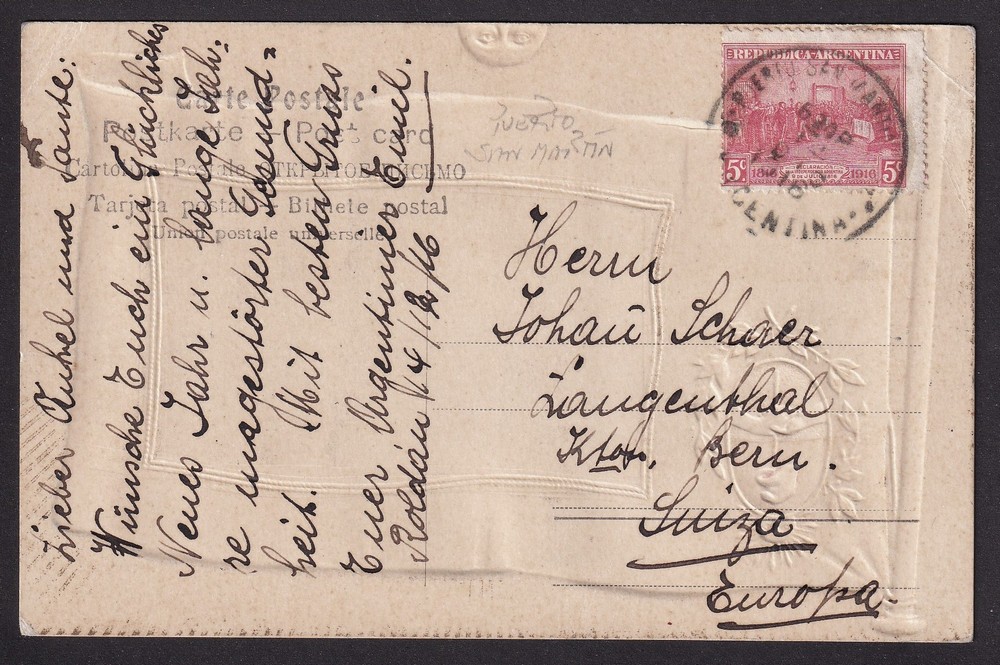 Carte Postale
Postkarte Post card
Tarjeta postal Bilhete postal
Union postale universelle
PUERTO
SAN MARTIN
REPUBLICA ARGENTINA
5c. 1816 DECLARACIÓN 1916 5c.
Lieber Onkel und Tante:
Wünsche Euch ein Glückliches
Neues Jahr u. lange Jah-
re ungestörter Gesund=
heit. Mit besten Gruss
Euer Argentiner Emil.
Roldán 14/12/16
Herrn
Johañ Schaer
Langenthal
Kton. Bern.
Suiza
Europa.